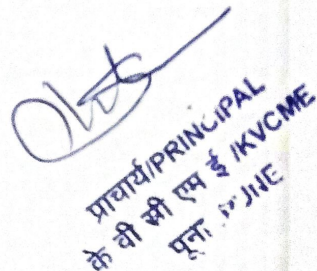 प्राचार्य/PRINCIPAL
के वी सी एम ई /KVCME
पूना